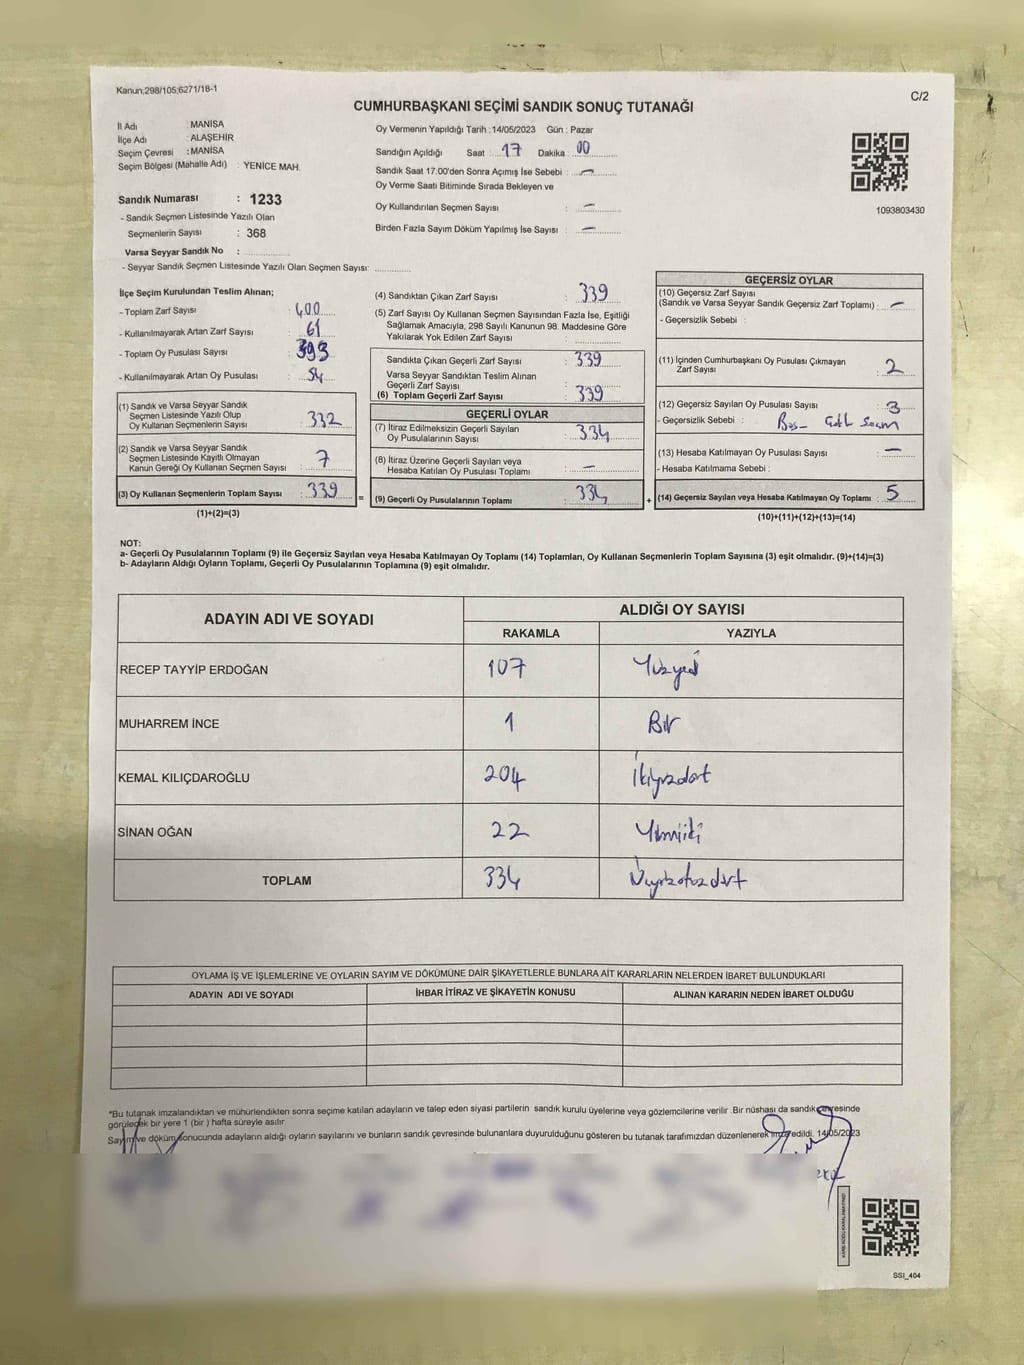 Kanun;298/105;6271/18-1
C/2
CUMHURBAŞKANI SEÇİMİ SANDIK SONUÇ TUTANAĞI
İl Adı : MANİSA
İlçe Adı : ALAŞEHİR
Seçim Çevresi : MANİSA
Seçim Bölgesi (Mahalle Adı) : YENİCE MAH.
Sandık Numarası : 1233
- Sandık Seçmen Listesinde Yazılı Olan
Seçmenlerin Sayısı : 368
Varsa Seyyar Sandık No :
- Seyyar Sandık Seçmen Listesinde Yazılı Olan Seçmen Sayısı:
Oy Vermenin Yapıldığı Tarih : 14/05/2023 Gün : Pazar
Sandığın Açıldığı Saat : 17 Dakika : 00
Sandık Saat 17.00'den Sonra Açımış İse Sebebi : —
Oy Verme Saati Bitiminde Sırada Bekleyen ve
Oy Kullandırılan Seçmen Sayısı : —
Birden Fazla Sayım Döküm Yapılmış İse Sayısı : —
1093803430
İlçe Seçim Kurulundan Teslim Alınan;
- Toplam Zarf Sayısı : 400
- Kullanılmayarak Artan Zarf Sayısı : 61
- Toplam Oy Pusulası Sayısı : 393
- Kullanılmayarak Artan Oy Pusulası : 54
(1) Sandık ve Varsa Seyyar Sandık
Seçmen Listesinde Yazılı Olup
Oy Kullanan Seçmenlerin Sayısı : 332
(2) Sandık ve Varsa Seyyar Sandık
Seçmen Listesinde Kayıtlı Olmayan
Kanun Gereği Oy Kullanan Seçmen Sayısı : 7
(3) Oy Kullanan Seçmenlerin Toplam Sayısı : 339
(1)+(2)=(3)
(4) Sandıktan Çıkan Zarf Sayısı : 339
(5) Zarf Sayısı Oy Kullanan Seçmen Sayısından Fazla İse, Eşitliği
Sağlamak Amacıyla, 298 Sayılı Kanunun 98. Maddesine Göre
Yakılarak Yok Edilen Zarf Sayısı :
Sandıkta Çıkan Geçerli Zarf Sayısı : 339
Varsa Seyyar Sandıktan Teslim Alınan
Geçerli Zarf Sayısı :
(6) Toplam Geçerli Zarf Sayısı : 339
GEÇERLİ OYLAR
(7) İtiraz Edilmeksizin Geçerli Sayılan
Oy Pusulalarının Sayısı : 334
(8) İtiraz Üzerine Geçerli Sayılan veya
Hesaba Katılan Oy Pusulası Toplamı : —
= (9) Geçerli Oy Pusulalarının Toplamı : 334 +
GEÇERSİZ OYLAR
(10) Geçersiz Zarf Sayısı
(Sandık ve Varsa Seyyar Sandık Geçersiz Zarf Toplamı) : —
- Geçersizlik Sebebi :
(11) İçinden Cumhurbaşkanı Oy Pusulası Çıkmayan
Zarf Sayısı : 2
(12) Geçersiz Sayılan Oy Pusulası Sayısı : 3
- Geçersizlik Sebebi :
(13) Hesaba Katılmayan Oy Pusulası Sayısı : —
- Hesaba Katılmama Sebebi :
(14) Geçersiz Sayılan veya Hesaba Katılmayan Oy Toplamı : 5
(10)+(11)+(12)+(13)=(14)
NOT:
a- Geçerli Oy Pusulalarının Toplamı (9) ile Geçersiz Sayılan veya Hesaba Katılmayan Oy Toplamı (14) Toplamları, Oy Kullanan Seçmenlerin Toplam Sayısına (3) eşit olmalıdır. (9)+(14)=(3)
b- Adayların Aldığı Oyların Toplamı, Geçerli Oy Pusulalarının Toplamına (9) eşit olmalıdır.
ADAYIN ADI VE SOYADI ALDIĞI OY SAYISI
RAKAMLA YAZIYLA
RECEP TAYYİP ERDOĞAN 107 Yüzyedi
MUHARREM İNCE 1 Bir
KEMAL KILIÇDAROĞLU 204 İkiyüzdört
SİNAN OĞAN 22 Yirmiiki
TOPLAM 334 Üçyüzotuzdört
OYLAMA İŞ VE İŞLEMLERİNE VE OYLARIN SAYIM VE DÖKÜMÜNE DAİR ŞİKAYETLERLE BUNLARA AİT KARARLARIN NELERDEN İBARET BULUNDUKLARI
ADAYIN ADI VE SOYADI İHBAR İTİRAZ VE ŞİKAYETİN KONUSU ALINAN KARARIN NEDEN İBARET OLDUĞU
*Bu tutanak imzalandıktan ve mühürlendikten sonra seçime katılan adayların ve talep eden siyasi partilerin sandık kurulu üyelerine veya gözlemcilerine verilir .Bir nüshası da sandık çevresinde
görülecek bir yere 1 (bir ) hafta süreyle asılır
Sayım ve döküm sonucunda adayların aldığı oyların sayılarını ve bunların sandık çevresinde bulunanlara duyurulduğunu gösteren bu tutanak tarafımızdan düzenlenerek imza edildi. 14/05/2023
SSI_404